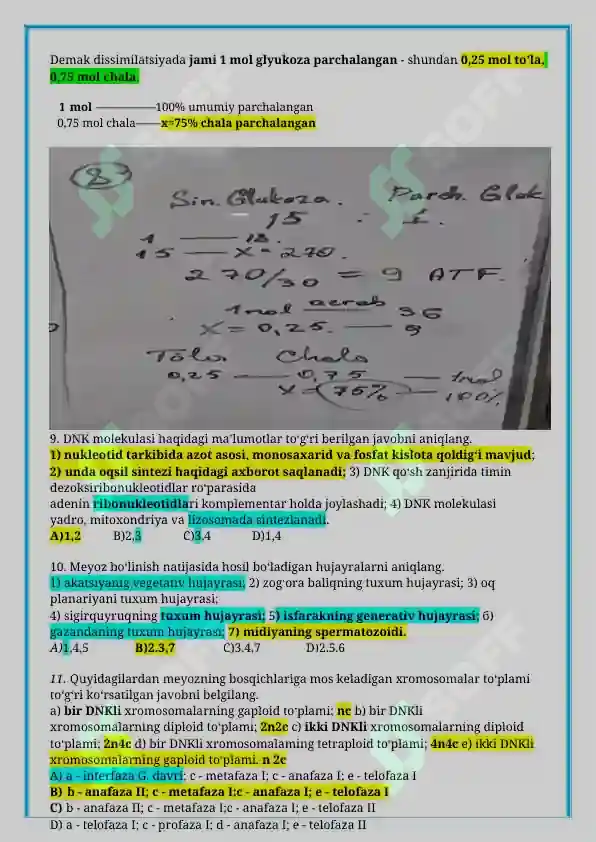 Demak dissimilatsiyada jami 1 mol glyukoza parchalangan - shundan 0,25 mol to'la,
0,75 mol chala.
1 mol ——————100% umumiy parchalangan
0,75 mol chala——x=75% chala parchalangan
8
Sin. Glukoza. Parch. Gluk
15 : 1.
1 —— 18.
15 — x = 270.
270/30 = 9 ATF.
1mol aerob 36
x = 0,25. —— 9
Tola Chala
0,25 —— 0,75 —— 1mol
x = 75% — 100%
9. DNK molekulasi haqidagi ma'lumotlar to'g'ri berilgan javobni aniqlang.
1) nukleotid tarkibida azot asosi, monosaxarid va fosfat kislota qoldig'i mavjud;
2) unda oqsil sintezi haqidagi axborot saqlanadi; 3) DNK qo'sh zanjirida timin
dezoksiribonukleotidlar ro'parasida
adenin ribonukleotidlari komplementar holda joylashadi; 4) DNK molekulasi
yadro, mitoxondriya va lizosomada sintezlanadi.
A)1,2 B)2,3 C)3,4 D)1,4
10. Meyoz bo'linish natijasida hosil bo'ladigan hujayralarni aniqlang.
1) akatsiyanig vegetativ hujayrasi; 2) zog'ora baliqning tuxum hujayrasi; 3) oq
planariyani tuxum hujayrasi;
4) sigirquyruqning tuxum hujayrasi; 5) isfarakning generativ hujayrasi; 6)
gazandaning tuxum hujayrasi; 7) midiyaning spermatozoidi.
A)1,4,5 B)2.3,7 C)3.4,7 D)2.5.6
11. Quyidagilardan meyozning bosqichlariga mos keladigan xromosomalar to'plami
to'g'ri ko'rsatilgan javobni belgilang.
a) bir DNKli xromosomalarning gaploid to'plami; nc b) bir DNKli
xromosomalarning diploid to'plami; 2n2c c) ikki DNKli xromosomalarning diploid
to'plami; 2n4c d) bir DNKli xromosomalaming tetraploid to'plami; 4n4c e) ikki DNKli
xromosomalarning gaploid to'plami. n 2c
A) a - interfaza G. davri; c - metafaza I; c - anafaza I; e - telofaza I
B) b - anafaza II; c - metafaza I;c - anafaza I; e - telofaza I
C) b - anafaza II; c - metafaza I;c - anafaza I; e - telofaza II
D) a - telofaza I; c - profaza I; d - anafaza I; e - telofaza II